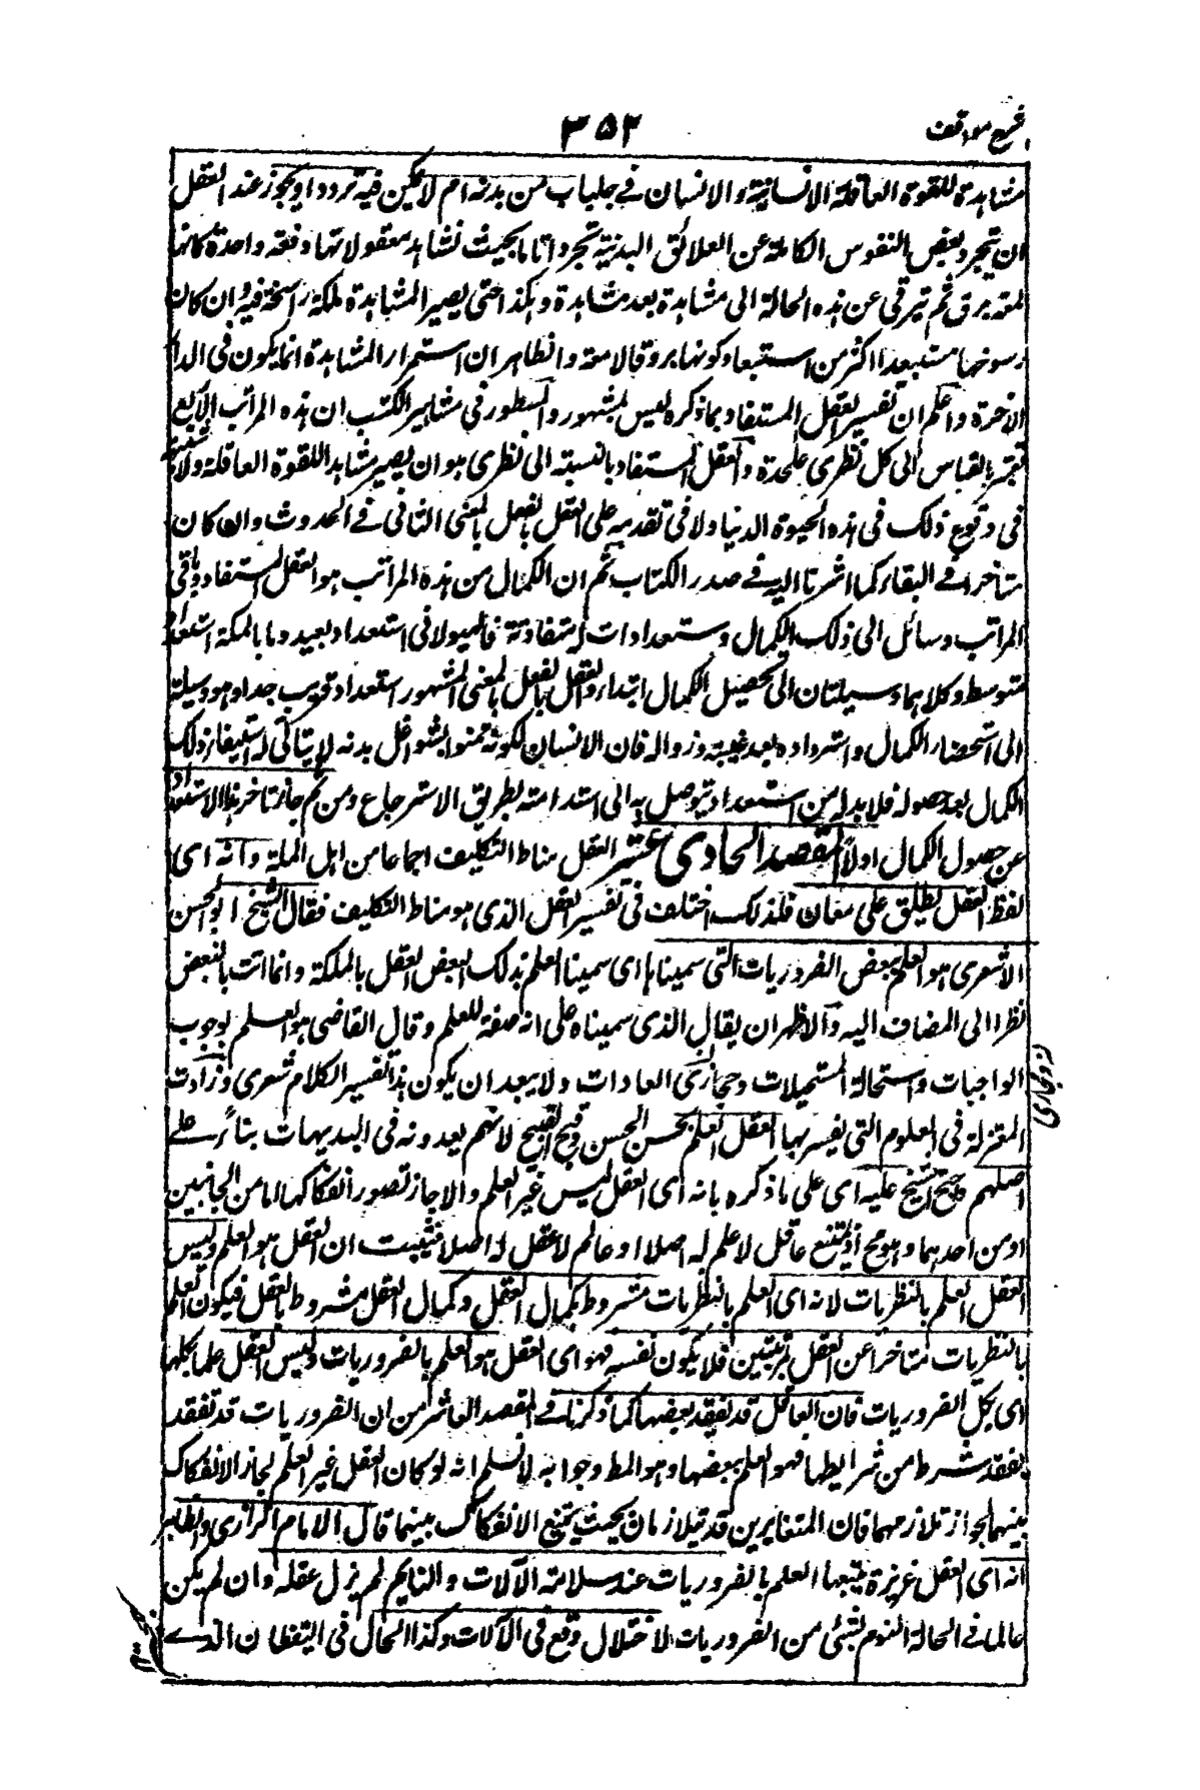 شرح مواقف
٣٥٢
مشاهدة للقوة العاقلة الانسانية والانسان في جلباب من بدنه ام لا يمكن فيه تردد اويجوز عند العقل
ان يتجرد بعض النفوس الكاملة عن العلائق البدنية تجردا تاما بحيث تشاهد معقولاتها دفعة واحدة كانها
لمعة برق ثم يترقى عن هذه الحالة الى مشاهدة بعد مشاهدة وهكذا حتى يصير المشاهدة ملكة راسخة فيه وان كان
رسوخها مستبعدا اكثر من استبعاد كونها بروقا لامعة والظاهر ان استمرار المشاهدة انما يكون في الدار
الاخرة واعلم ان تفسير العقل المستفاد بما ذكره ليس بمشهور والمسطور في مشاهير الكتب ان هذه المراتب الاربع
تعتبر بالقياس الى كل نظري علحدة والعقل المستفاد بالنسبة الى نظري هو ان يصير مشاهدا للقوة العاقلة ولا شبهة
في وقوع ذلك في هذه الحيوة الدنيا ولا في تقدمه على العقل بالفعل بالمعنى الثاني في الحدوث وان كان
متاخرا في البقاء كما اشرنا اليه في صدر الكتاب ثم ان الكمال من هذه المراتب هو العقل المستفاد وباقي
المراتب وسائل الى ذلك الكمال واستعدادات له متفاوتة فالهيولاني استعداد بعيد وما بالملكة استعداد
متوسط وكلاهما وسيلتان الى تحصيل الكمال ابتداء والعقل بالفعل بالمعنى المشهور استعداد قريب جدا وهو وسيلة
الى استحضار الكمال واسترداده بعد غيبته وزواله فان الانسان لكونه ممنوا بشواغل بدنه لا يتاتى له استيفاء ذلك
الكمال بعد حصوله فلا بد له من استعداد يتوصل به الى استدامته بطريق الاسترجاع ومن ثم جاز تاخر هذا الاستعداد
عن حصول الكمال اولا المقصد الحادي عشر العقل مناط التكليف اجماعا من اهل الملة وانه اى
لفظ العقل يطلق على معان فلذلك اختلف في تفسير العقل الذي هو مناط التكليف فقال الشيخ ابو الحسن
الاشعري هو العلم ببعض الضروريات التي سميناها اى سمينا العلم بذلك البعض العقل بالملكة وانما انث البعض
نظرا الى المضاف اليه والاظهر ان يقال الذي سميناه على انه صفة للعلم وقال القاضي هو العلم بوجوب
الواجبات واستحالة المستحيلات ومجاري العادات ولا يبعد ان يكون هذا تفسير الكلام الاشعري وزادت
المعتزلة في العلوم التي يفسر بها العقل العلم بحسن الحسن وقبح القبيح لانهم يعدونه في البديهيات بناء على
اصلهم واحتج الشيخ عليه اى على ما ذكره بانه اى العقل ليس غير العلم والا جاز تصور انفكاكهما اما من الجانبين
او من احدهما وهو مح اذ يمتنع عاقل لا علم له اصلا او عالم لا عقل له اصلا فثبت ان العقل هو العلم وليس
العقل العلم بالنظريات لانه اى العلم بالنظريات مشروط بكمال العقل وكمال العقل مشروط بالعقل فيكون العلم
بالنظريات متاخرا عن العقل بمرتبتين فلا يكون نفسه فهو اى العقل هو العلم بالضروريات وليس العقل علما بكلها
اى بكل الضروريات فان العاقل قد يفقد بعضها كما ذكرنا في المقصد العاشر من ان الضروريات قد تفقد
بفقد شرط من شرايطها فهو العلم ببعضها وهو المط وجوابه لا نسلم انه لو كان العقل غير العلم لجاز الانفكاك
بينهما لجواز تلازمهما فان المتغايرين قد يتلازمان بحيث يمتنع الانفكاك بينهما قال الامام الرازي والظاهر
انه اى العقل غريزة يتبعها العلم بالضروريات عند سلامة الآلات والنايم لم يزل عقله وان لم يكن
عالما في الحالة النوم بشئ من الضروريات لاختلال وقع في الآلات وكذا الحال في اليقظان الذي